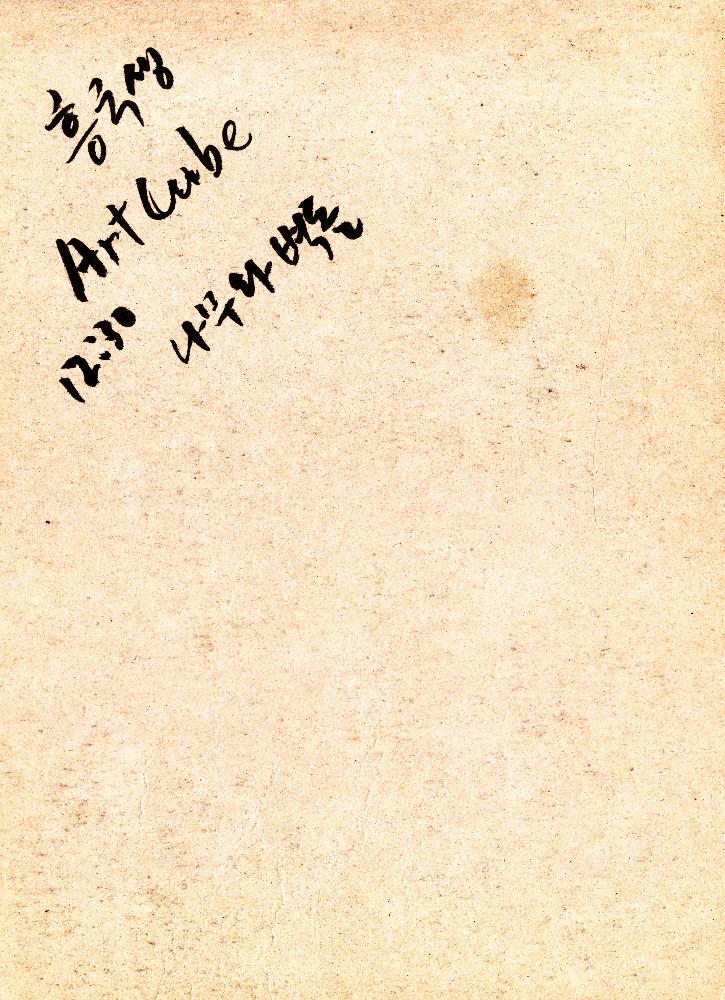 흥국생
Art Cube
12:30
나무와 벽돌